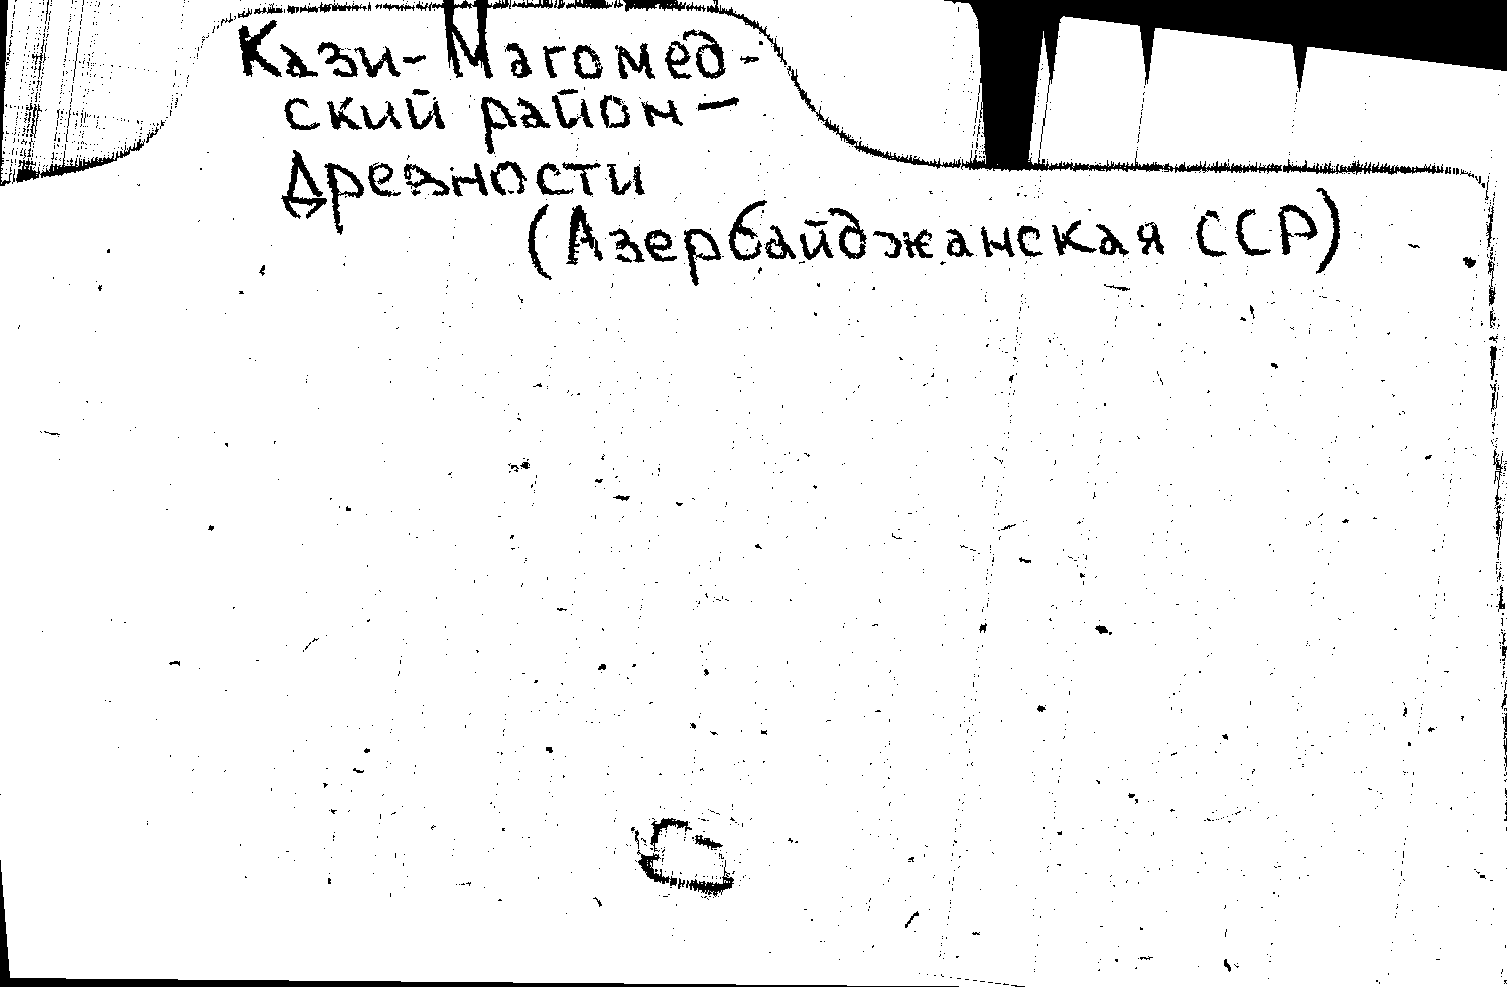 Кази-Магомед-
ский район —
Древности
(Азербайджанская ССР)